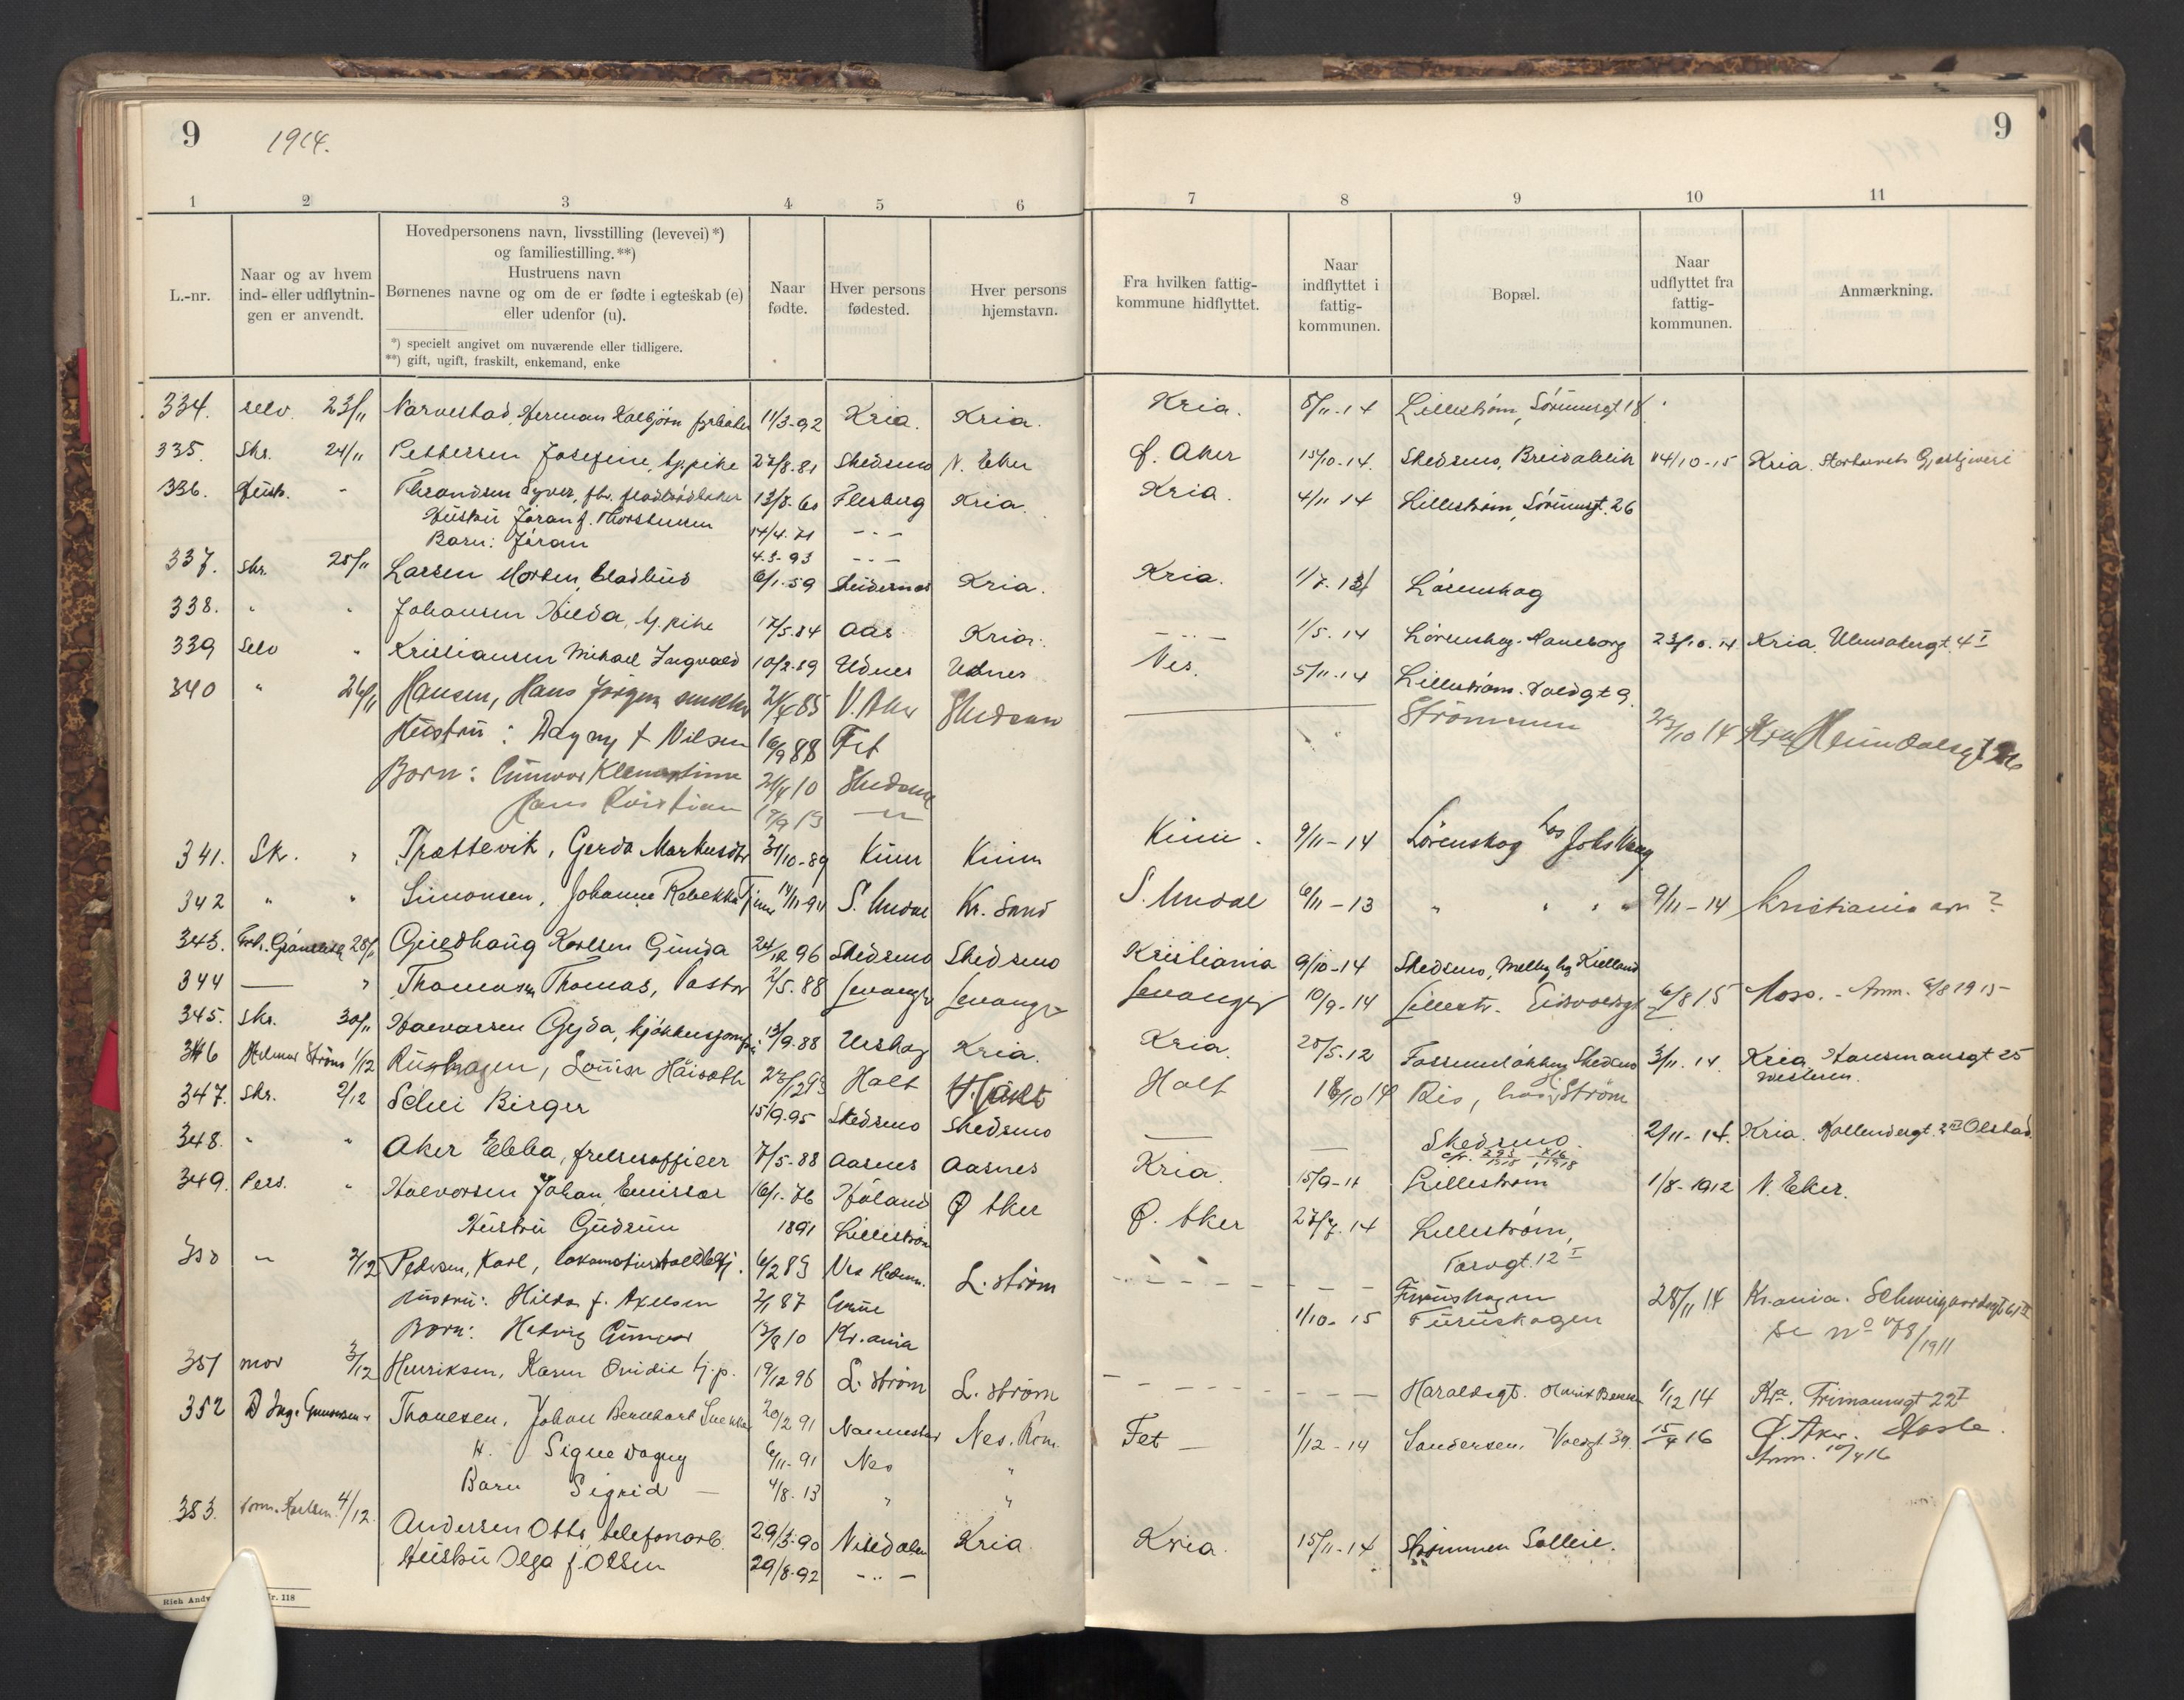 9 1914. 9
1 2 3 4 5 6 7 8 9 10 11
L.-nr.
Naar og av hvem
ind- eller udflytnin-
gen er anvendt.
Hovedpersonens navn, livsstilling (levevei) *)
og familiestilling. **)
Hustruens navn
Børnenes navne og om de er fødte i egteskab (e)
eller udenfor (u).
*) specielt angivet om nuværende eller tidligere.
**) gift, ugift, fraskilt, enkemand, enke
Naar
fødte.
Hver persons
fødested.
Hver persons
hjemstavn.
Fra hvilken fattig-
kommune hidflyttet.
Naar
indflyttet i
fattig-
kommunen.
Bopæl.
Naar
udflyttet fra
fattig-
kommunen.
Anmærkning.
334. selv. 23/11 Narvestad, Herman 11/3-92 Kria. Kria. Kria. 5/11-14 Lillestrøm, Sørumsgt 18
335. Skr. 24/11 Pettersen Josefine, tj. pike 27/8.81 Skedsmo N. Eker Ø. Aker 15/10-14. Skedsmo, Breidablik 14/10-15 Kria.
336. - Syver, 13/8.60 Flesberg Kria. Kria. 4/11 14 Lillestrøm, Sørumsgt. 26
Hustru Jøran f. Thorstensen 14/4.71 - - -
Barn: Jøran 4.3-93 - - -
337. Skr. 25/11 Larsen Morten, 6/1.59 Kria. Kria. 1/7.14 Lørenskog
338. " " Johansen Hilda, tj. pike 17/5.84 Aas Kria. - " - 1/5.14 Lørenskog. Haneborg 23/10.14 Kria. 4 I
339 Selv " Kristiansen Mikael Ingvald 10/2.89 Udnes Udnes Nes. 5/11-14 Lillestrøm. Voldgt 9.
340 " 26/11 Hansen, Hans Jørgen 85 V. Aker Skedsmo Strømmen 14
Hustru: Dagny f Nilsen 16/9 88 Fet
Børn: Gunvor 21/4 10 Skedsmo
Hans Kristian 17/9 13 - " -
341. Sk. " Trættevik, Gerda Markusdtr 31/10-89 Kinn Kinn Kinn. 9/11-14 Lørenskog hos Johs
342 " " Simonsen, Johanne Rebekka 14/11-94 S. Undal Kr. Sand S. Undal 6/11-13 " " " " 9/11-14 Kristiania ?
343. 28/11 Guldhaug Karlsen Gunda 24/12 96 Skedsmo Skedsmo Kristiania 9/10-14 Skedsmo, Kielland
344 — " Thomassen Thomas, Pastor 2/5.88 Levanger Levanger Levanger 10/9-14 Lillestr. Eidsvoldsgt 6/8 15 Moss. - Anm. 6/8 1915
345. Skr. 30/11 Halvorsen Gyda, 13/9.88 Urskog Kria. Kria. 25/5.12 Skedsmo 3/11.14. Kria, Hausmansgt 25
346 Strøm 1/12 Louise 93 Holt Holt Holt 18/10 14 Ris, hos Strøm
347. Skr. 2/12 Schei Birger 15/9.95 Skedsmo Skedsmo — — Skedsmo. 2/11-14. Kria. Olstad.
348. " " Aker Ebba, frelsesofficer 7/5-88 Aasnes Aasnes Kria. 15/9-14 Lillestrøm 1/8-1912 N. Eker.
349. Pers. " Halvorsen Johan Emissær 16/1.76 Høland Ø Aker Ø. Aker 27/7.14 Lillestrøm,
Hustru Gudrun 1891 Lillestrøm Torvgt. 12 I
350 " 2/12 Pedersen, Karl, 6/2 89 Nes Hedm. L. strøm Furuskogen 28/11 14 Kr.ania. Schweigaardsgt
Hustru: Hilda f. Axelsen 2/1 87 Grue 1/10-15 Furuskogen
Børn: Hedvig Gunvor 13/8 10 Kr.ania Se No 78/1911
351 mor 3/12 Henriksen, Karen tj. p. 19/12 96 L. strøm L. strøm Haraldsgt. 1/12 14 Kra. Frimannsgt 22 I
352 Thonesen, Johan Bernhard 20/2 91 Nannestad Nes. Rom. Fet — 1/12-14 Sandersen. Voldgt 39. 15/4 16 Ø. Aker. Hasle.
H. Signe Dagny 6/11-91 Nes " Anm. 10/4 16
Barn Sigrid — 4/8-13 " "
353. 4/12. Andersen Otto, telefonarb. 29/3-90 Nitedalen Kria. Kria. 15/11-14 Strømmen Sollie.
Hustru Olga f. Olsen 29/8-92 - " -